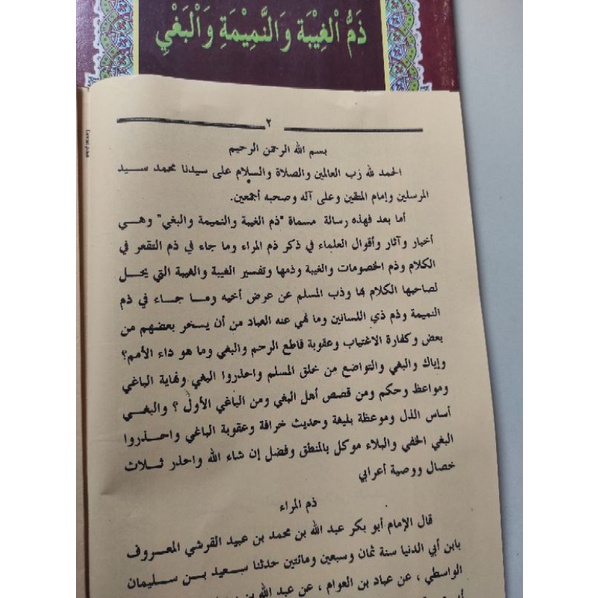 ذَمُّ الْغِيْبَةِ وَالنَّمِيْمَةِ وَالْبَغْيِ
٢
بسم الله الرحمن الرحيم
الحمد لله رب العالمين والصلاة والسلام على سيدنا محمد سيد
المرسلين وإمام المتقين وعلى آله وصحبه أجمعين.
أما بعد فهذه رسالة مسماة "ذم الغيبة والنميمة والبغي" وهي
أخبار وآثار وأقوال العلماء في ذكر ذم المراء وما جاء في ذم التقعر في
الكلام وذم الخصومات والغيبة وذمها وتفسير الغيبة والغيبة التي يحل
لصاحبها الكلام بها وذب المسلم عن عرض أخيه وما جاء في ذم
النميمة وذم ذي اللسانين وما نهي عنه العباد من أن يسخر بعضهم من
بعض وكفارة الاغتياب وعقوبة قاطع الرحم والبغي وما هو داء الأمم؟
وإياك والبغي والتواضع من خلق المسلم واحذروا البغي ونهاية الباغي
ومواعظ وحكم ومن قصص أهل البغي ومن الباغي الأول؟ والبغي
أساس الذل وموعظة بليغة وحديث خرافة وعقوبة الباغي واحذروا
البغي الخفي والبلاء موكل بالمنطق وفضل إن شاء الله واحذر ثلاث
خصال ووصية أعرابي
ذم المراء
قال الإمام أبو بكر عبد الله بن محمد بن عبيد القرشي المعروف
بابن أبي الدنيا سنة ثمان وسبعين ومائتين حدثنا سعيد بن سليمان
الواسطي ، عن عباد بن العوام ، عن عبد الله بن